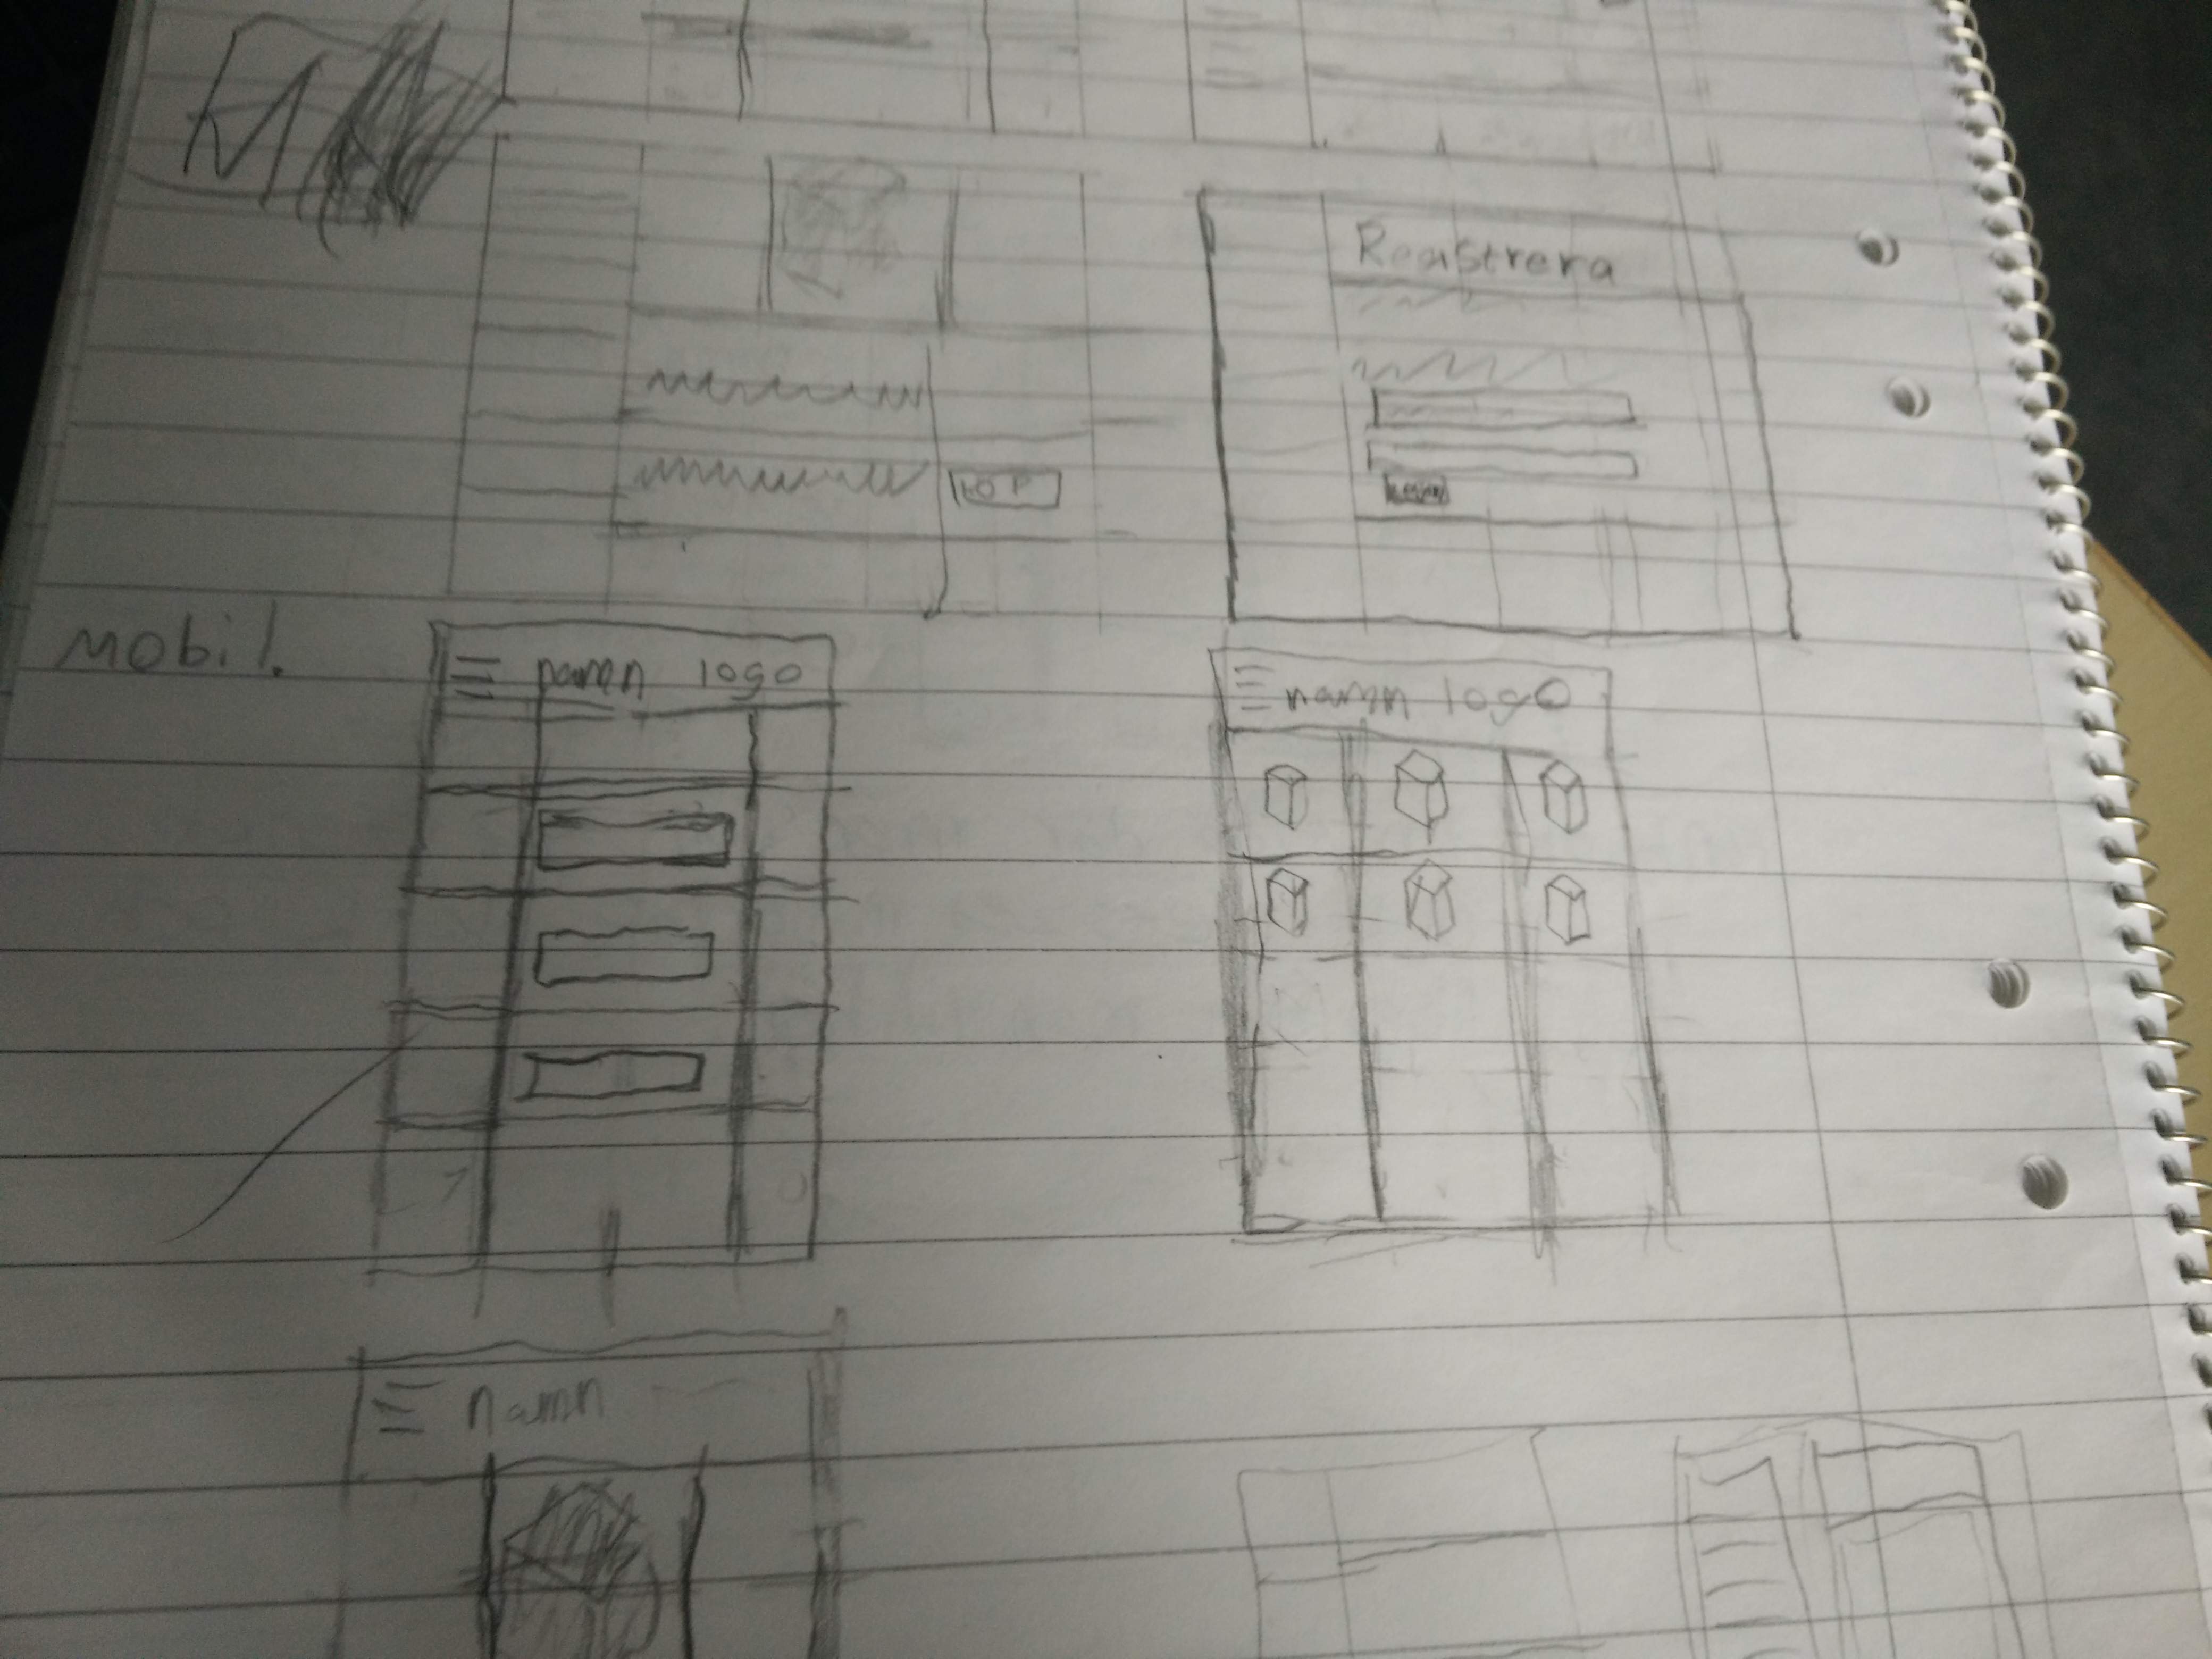 Registrera
KÖP
mobil.
namn logo
namn logo
namn